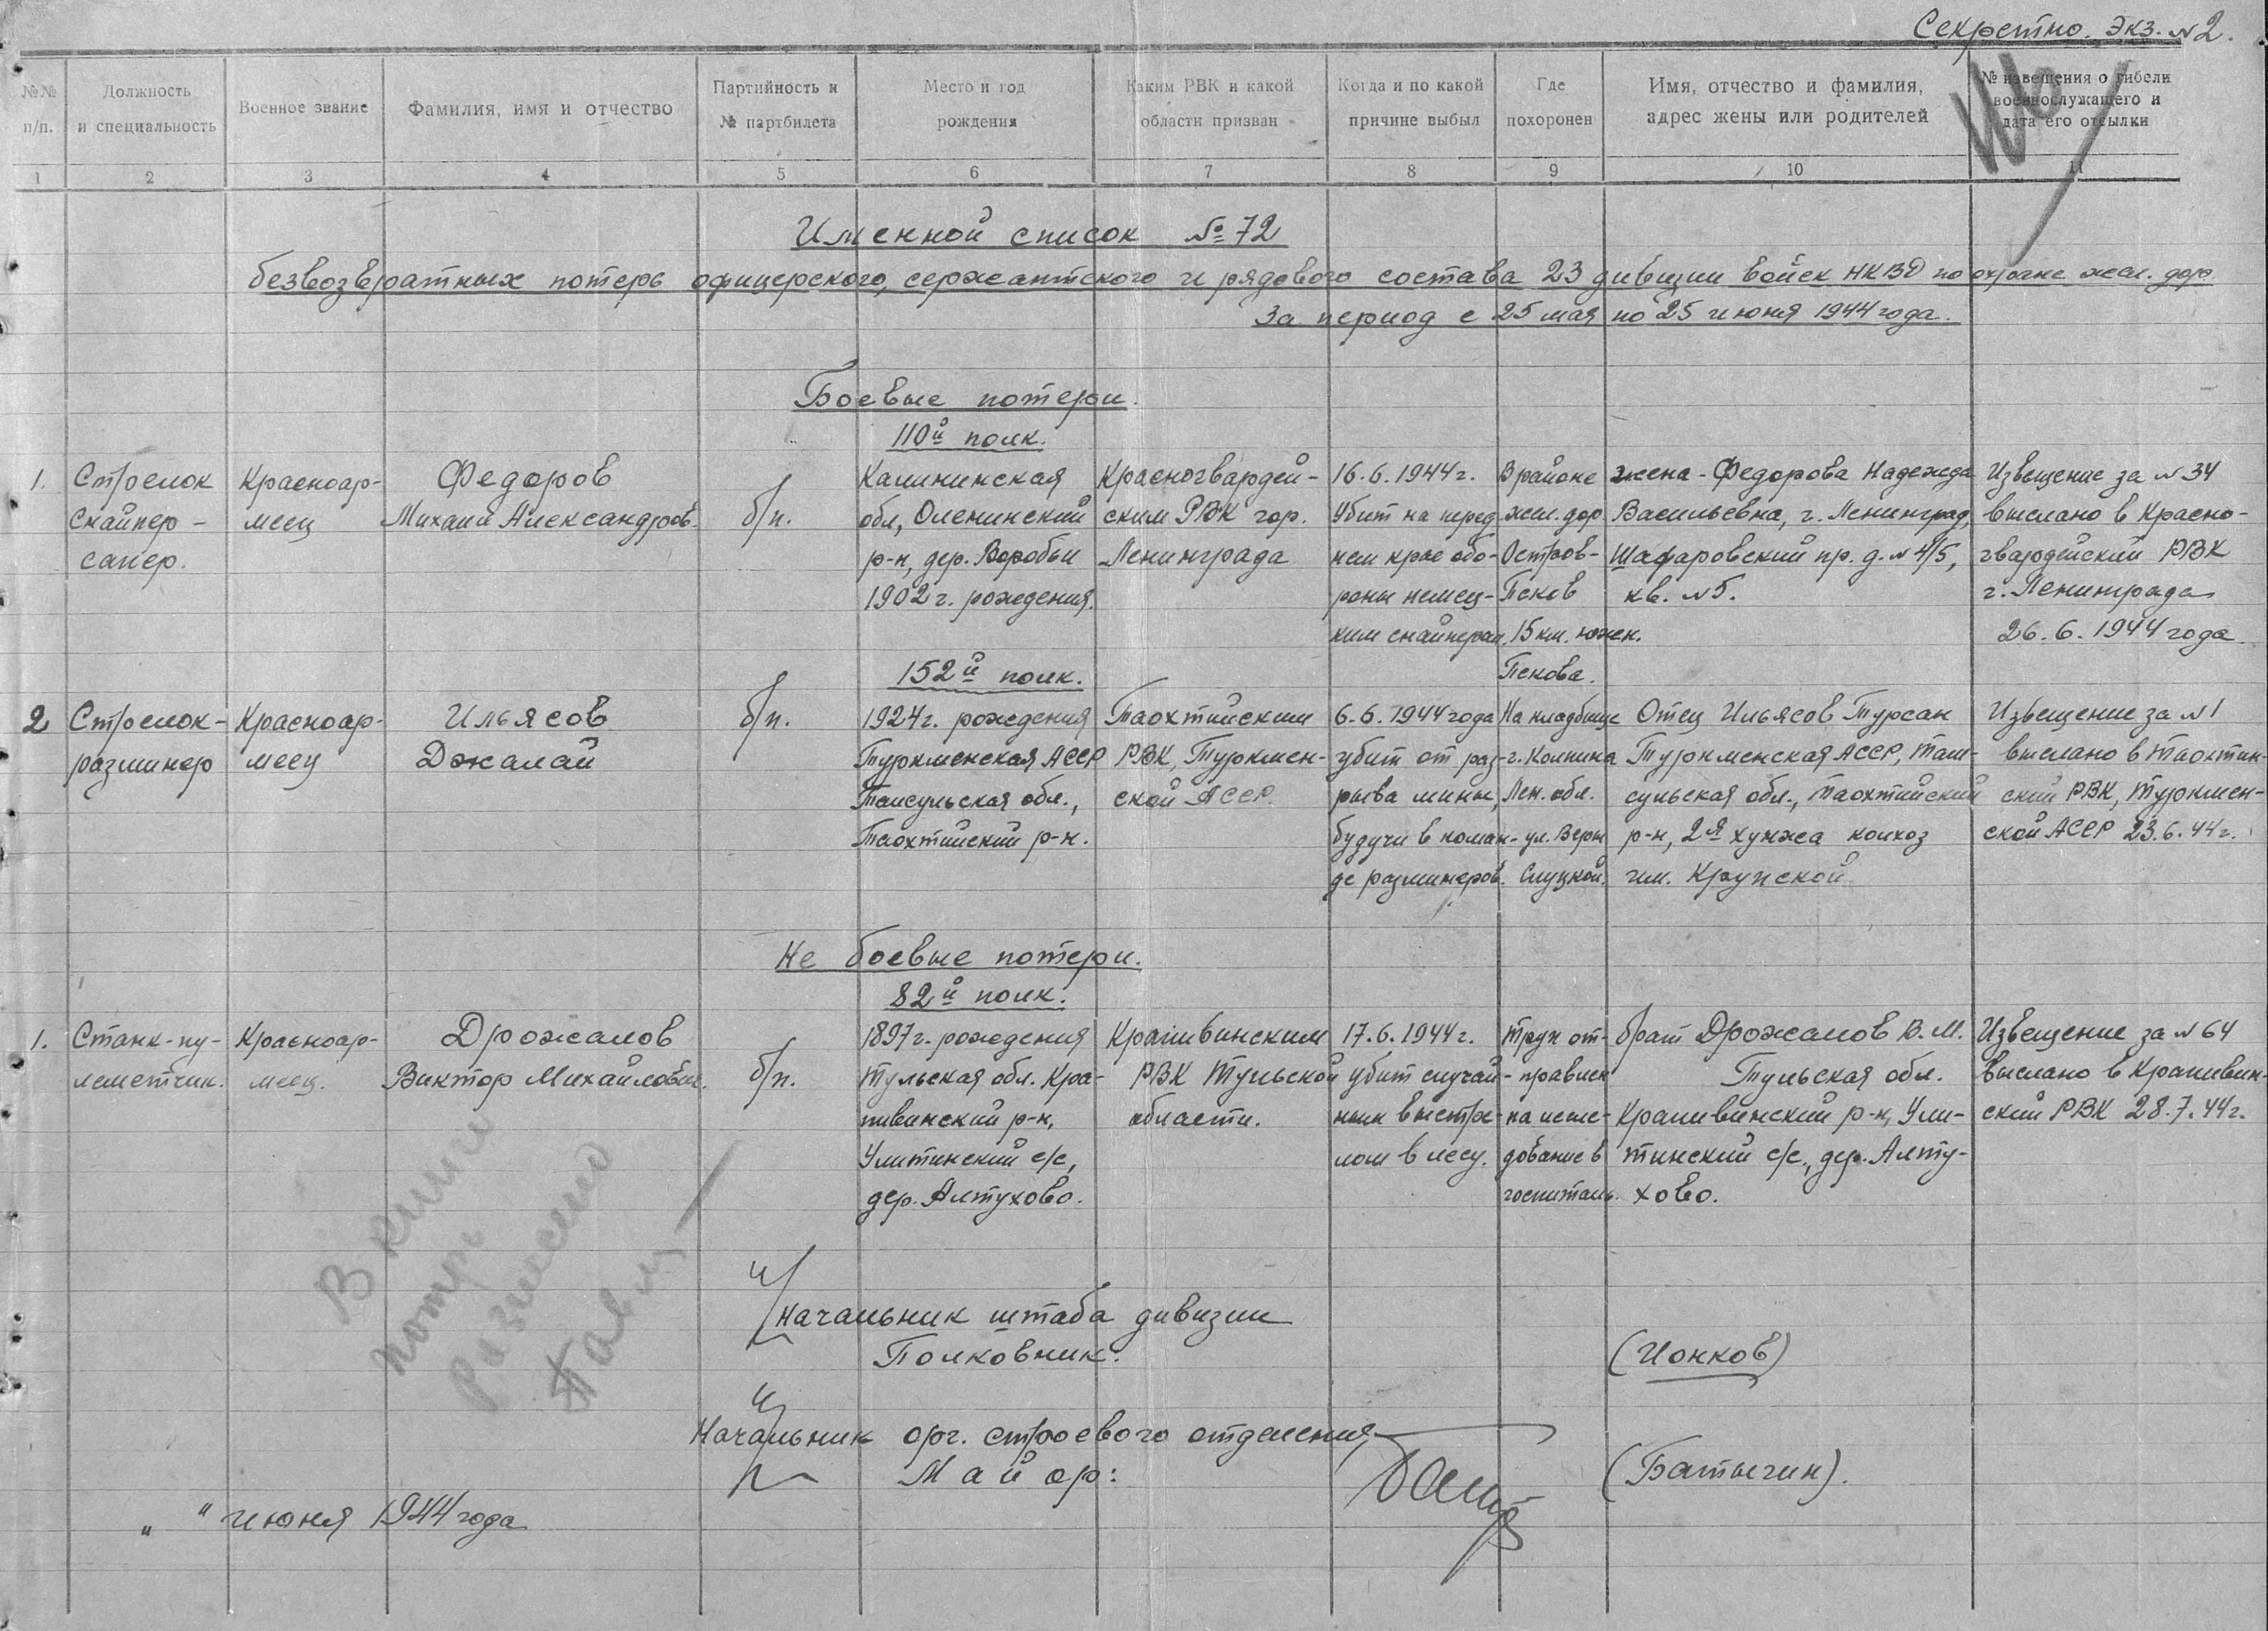 Секретно. Экз. №2.
№№ п/п.
Должность и специальность
Военное звание
Фамилия, имя и отчество
Партийность и № партбилета
Место и год рождения
Каким РВК и какой области призван
Когда и по какой причине выбыл
Где похоронен
Имя, отчество и фамилия, адрес жены или родителей
№ извещения о гибели военнослужащего и дата его отсылки
1 2 3 4 5 6 7 8 9 10 11
Именной список №72
безвозвратных потерь офицерского, сержантского и рядового состава 23 дивизии войск НКВД по охране жел. дор.
За период с 25 мая по 25 июня 1944 года.
Боевые потери.
110й полк.
1.
Стрелок
снайпер –
сапер.
Красноар-
меец
Федоров
Михаил Александров.
б/п.
Калининская
обл, Оленинский
р-н, дер. Воробьи
1902 г. рождения.
Красногвардей-
ским РВК гор.
Ленинграда
16.6.1944 г.
Убит на перед
нем крае обо-
роны немец-
ким снайпером.
В районе
жел. дор
Остров-
Псков
15 км. южн.
Пскова.
жена - Федорова Надежда
Васильевна, г. Ленинград,
Шафаровский пр. д. №4/5,
кв. №5.
Извещение за №34
выслано в Красно-
гвардейский РВК
г. Ленинграда
26.6.1944 года.
152й полк.
2
Стрелок-
разминер
Красноар-
меец
Ильясов
Джалай
б/п.
1924 г. рождения
Туркменская АССР
Таисульская обл.,
Таохтинский р-н.
Таохтийским
РВК, Туркмен-
ской АССР.
6.6.1944 года
убит от раз-
рыва мины,
будучи в коман-
де разминеров.
На кладбище
г. Колпина
Лен. обл.
ул. Веры
Слуцкой.
Отец Ильясов Турсан
Туркменская АССР, Таш-
сульская обл., Таохтийский
р-н, 2я хунжа колхоз
им. Крупской
Извещение за №1
выслано в Таохтин-
ский РВК, Туркмен-
ской АССР 23.6.44 г.
Не боевые потери.
82й полк.
1.
Станк-пу-
леметчик.
Красноар-
меец.
Дрожалов
Виктор Михайлович.
б/п.
1897 г. рождения
Тульская обл. Кра-
пивинский р-н,
Улитинский с/с,
дер. Алтухово.
Крапивинским
РВК Тульской
области.
17.6.1944 г.
убит случай-
ным выстре-
лом в лесу.
Труп от-
правлен
на иссле-
дование в
госпиталь.
брат Дрожалов В.М.
Тульская обл.
Крапивинский р-н, Ули-
тинский с/с., дер. Алту-
хово.
Извещение за №64
выслано в Крапивин-
ский РВК 28.7.44 г.
Начальник штаба дивизии
Полковник:
(Ионков)
Начальник орг. строевого отделения
Майор:
(Батыгин).
„ " июня 1944 года